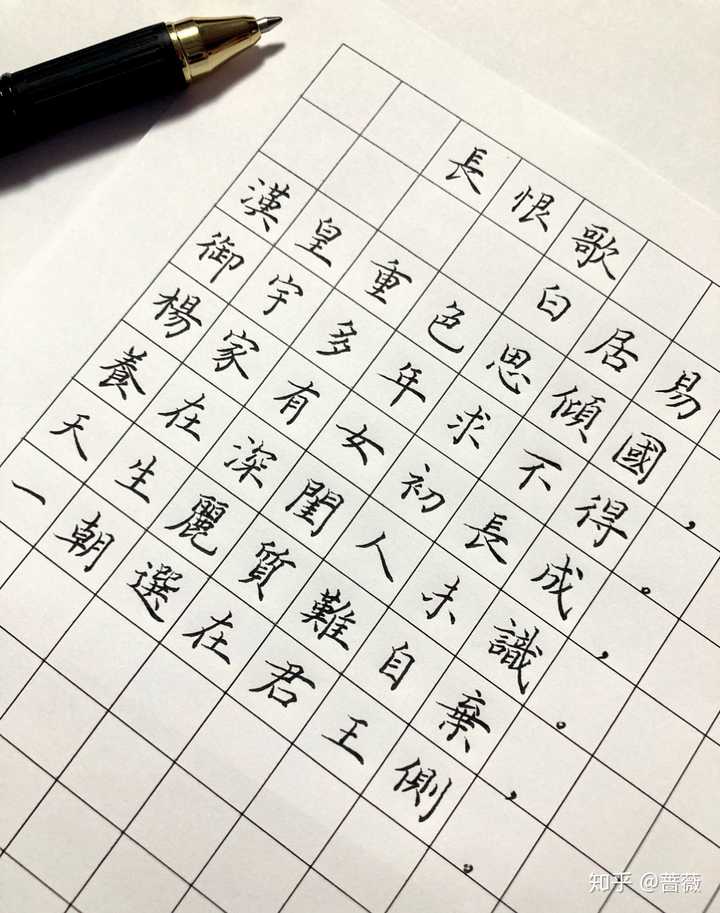 長恨歌
白居易
漢皇重色思傾國，
御宇多年求不得。
楊家有女初長成，
養在深閨人未識。
天生麗質難自棄，
一朝選在君王側。
知乎 @蔷薇